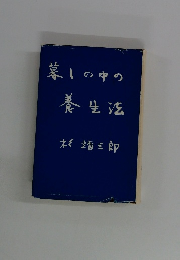 暮しの中の
養生法
杉靖三郎